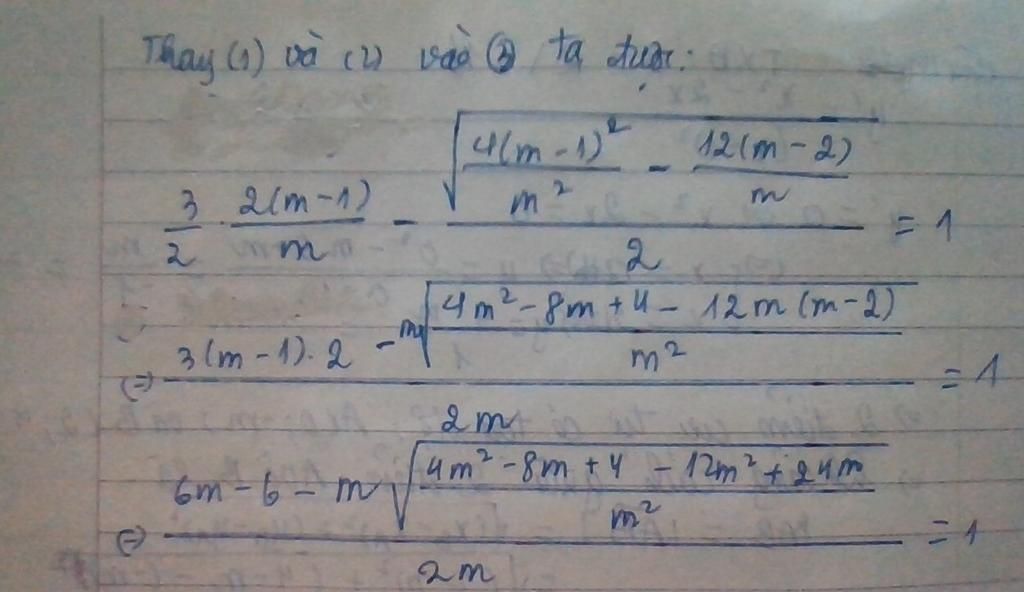 Thay (1) và (2) vào (3) ta được:
3/2 · 2(m-1)/m - √(4(m-1)²/m² - 12(m-2)/m)/2 = 1
(=) (3(m-1)·2 - m√((4m²-8m+4-12m(m-2))/m²))/2m = 1
(=) (6m-6-m√((4m²-8m+4-12m²+24m)/m²))/2m = 1